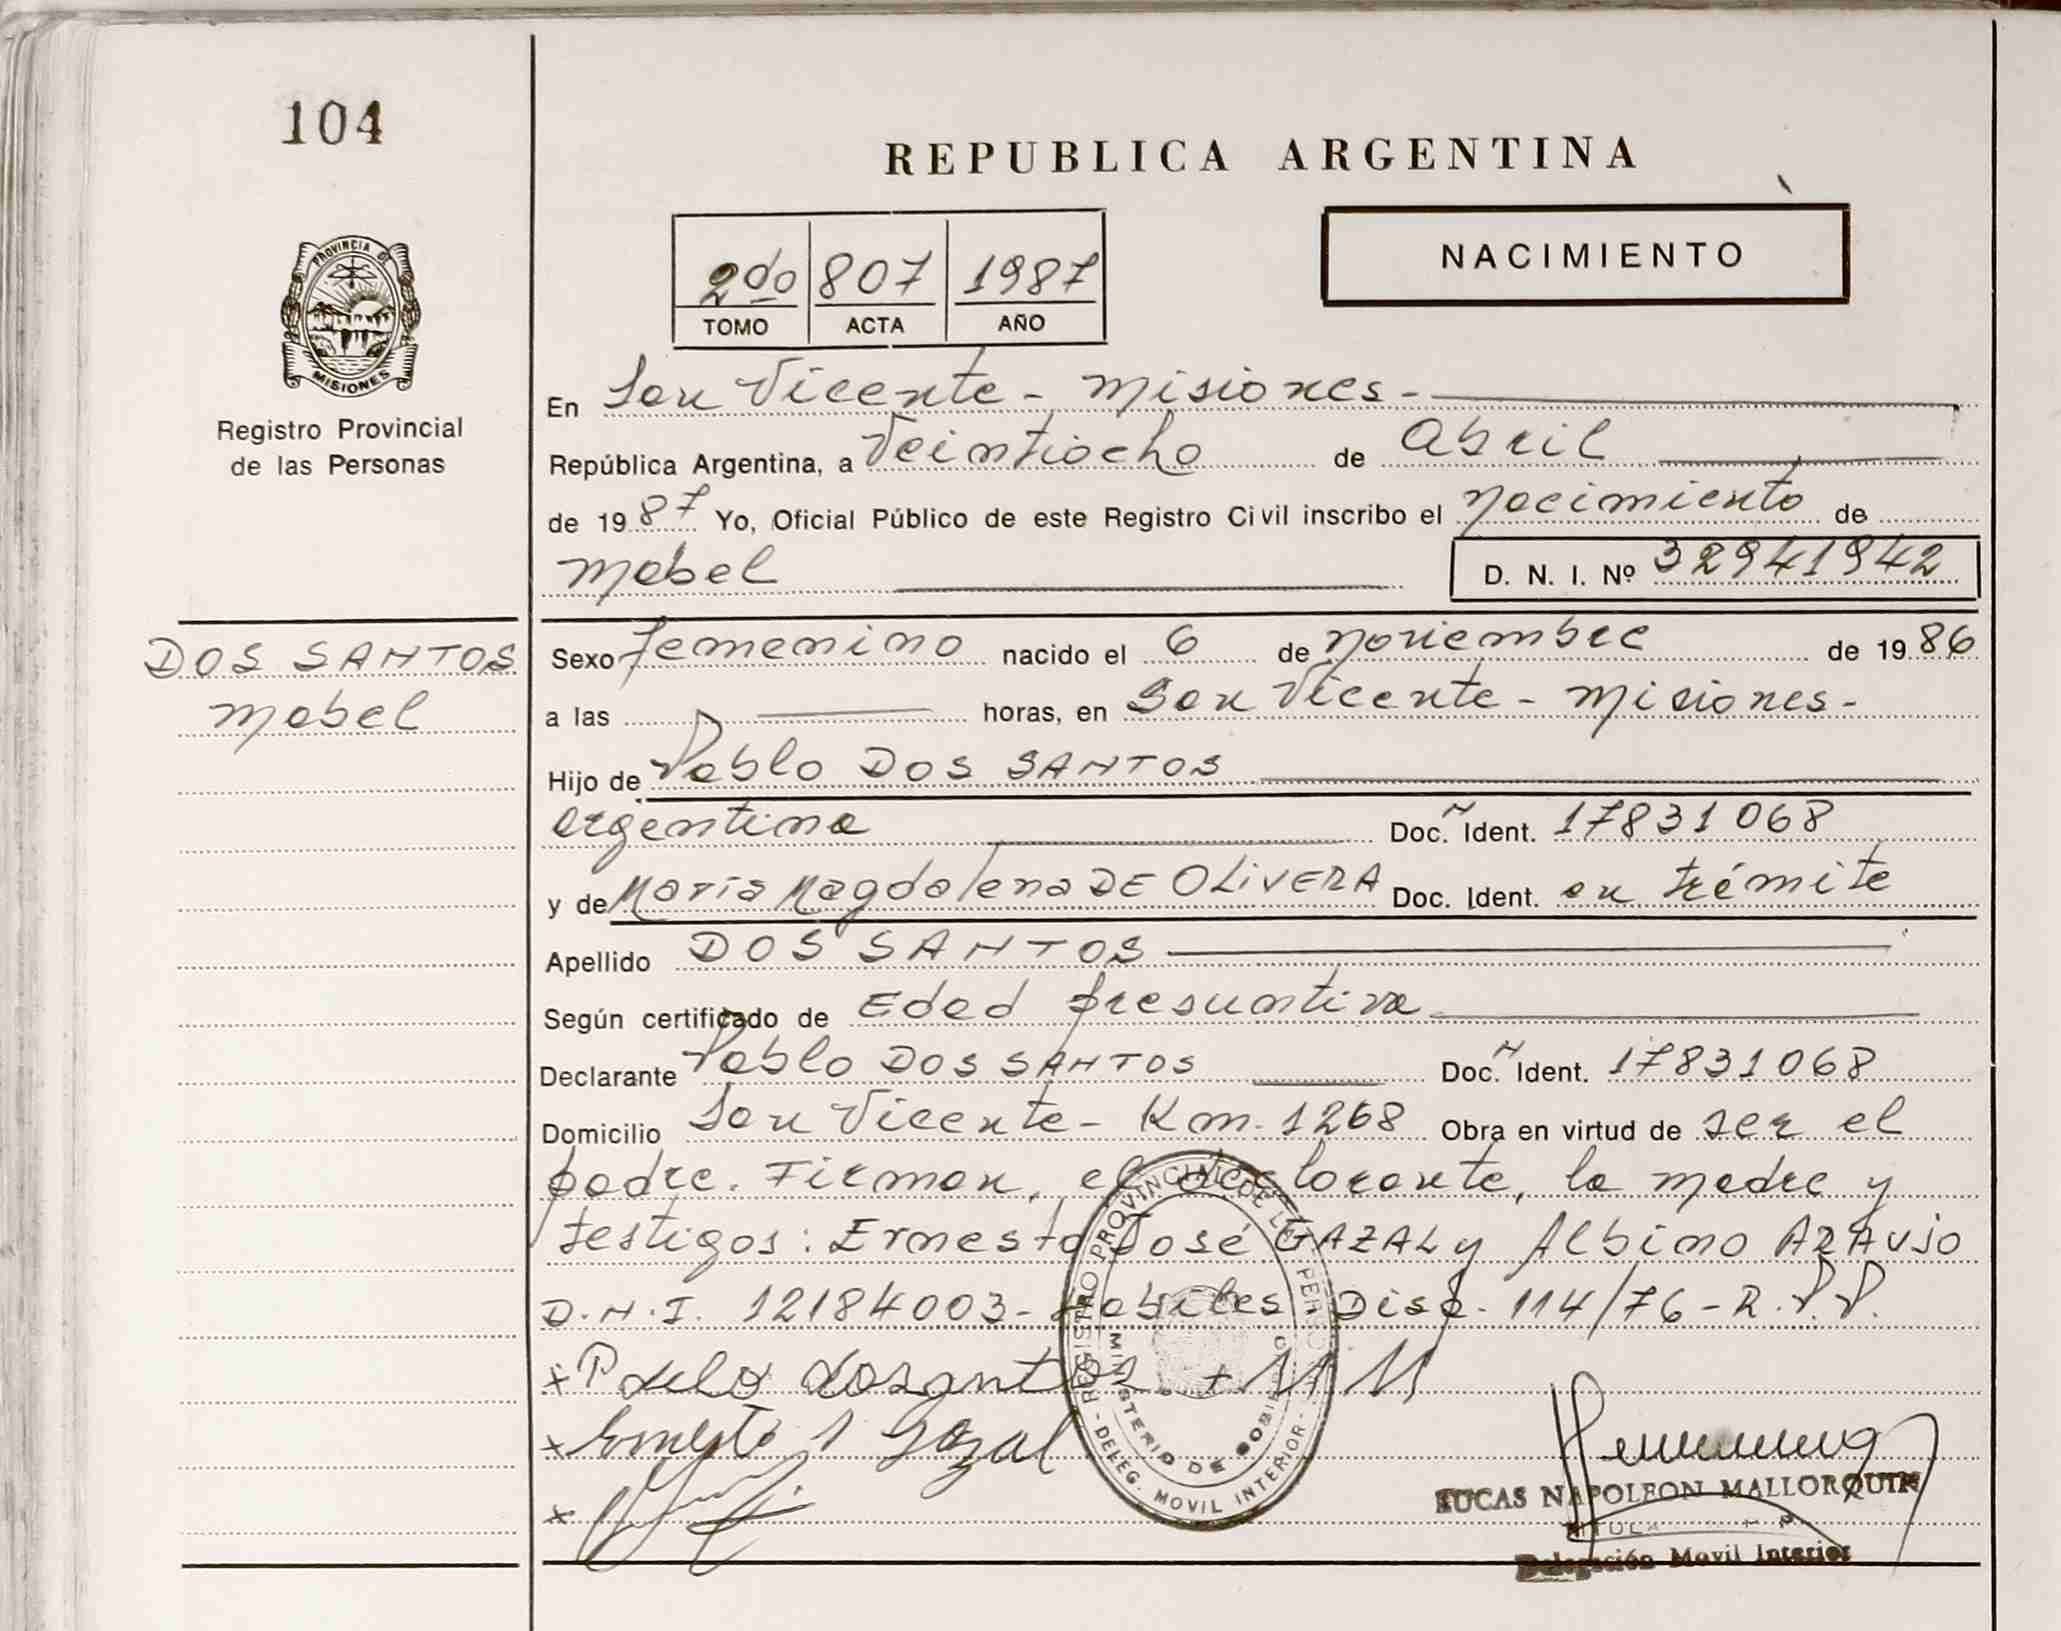 104
REPUBLICA ARGENTINA
2do 807 1987
TOMO ACTA AÑO
NACIMIENTO
PROVINCIA DE
MISIONES
Registro Provincial
de las Personas
En San Vicente - Misiones -
República Argentina, a Veintiocho de Abril
de 1987 Yo, Oficial Público de este Registro Civil inscribo el Nacimiento de
Mabel D. N. I. Nº 32941942
DOS SANTOS
Mabel
Sexo Femenino nacido el 6 de Noviembre de 1986
a las horas, en San Vicente - Misiones -
Hijo de Pablo DOS SANTOS
argentina Doc. N Ident. 17831068
y de María Magdalena DE OLIVERA Doc. Ident. en trámite
Apellido DOS SANTOS
Según certificado de Edad presuntiva
Declarante Pablo DOS SANTOS Doc. N Ident. 17831068
Domicilio San Vicente - Km. 1268 Obra en virtud de ser el
padre. Firman, el declarante, la madre y
testigos: Ernesto José GAZAL y Albino ARAUJO
D.N.I. 12184003 - Habiles. Disp. 114/76 - R.P.P.
x Pablo dosantos +
x Ernesto J Gazal
x
REGISTRO PROVINCIAL DE LAS PERSONAS
MINISTERIO DE GOBIERNO
- DELEG. MOVIL INTERIOR -
LUCAS NAPOLEON MALLORQUIN
Delegación Movil Interior